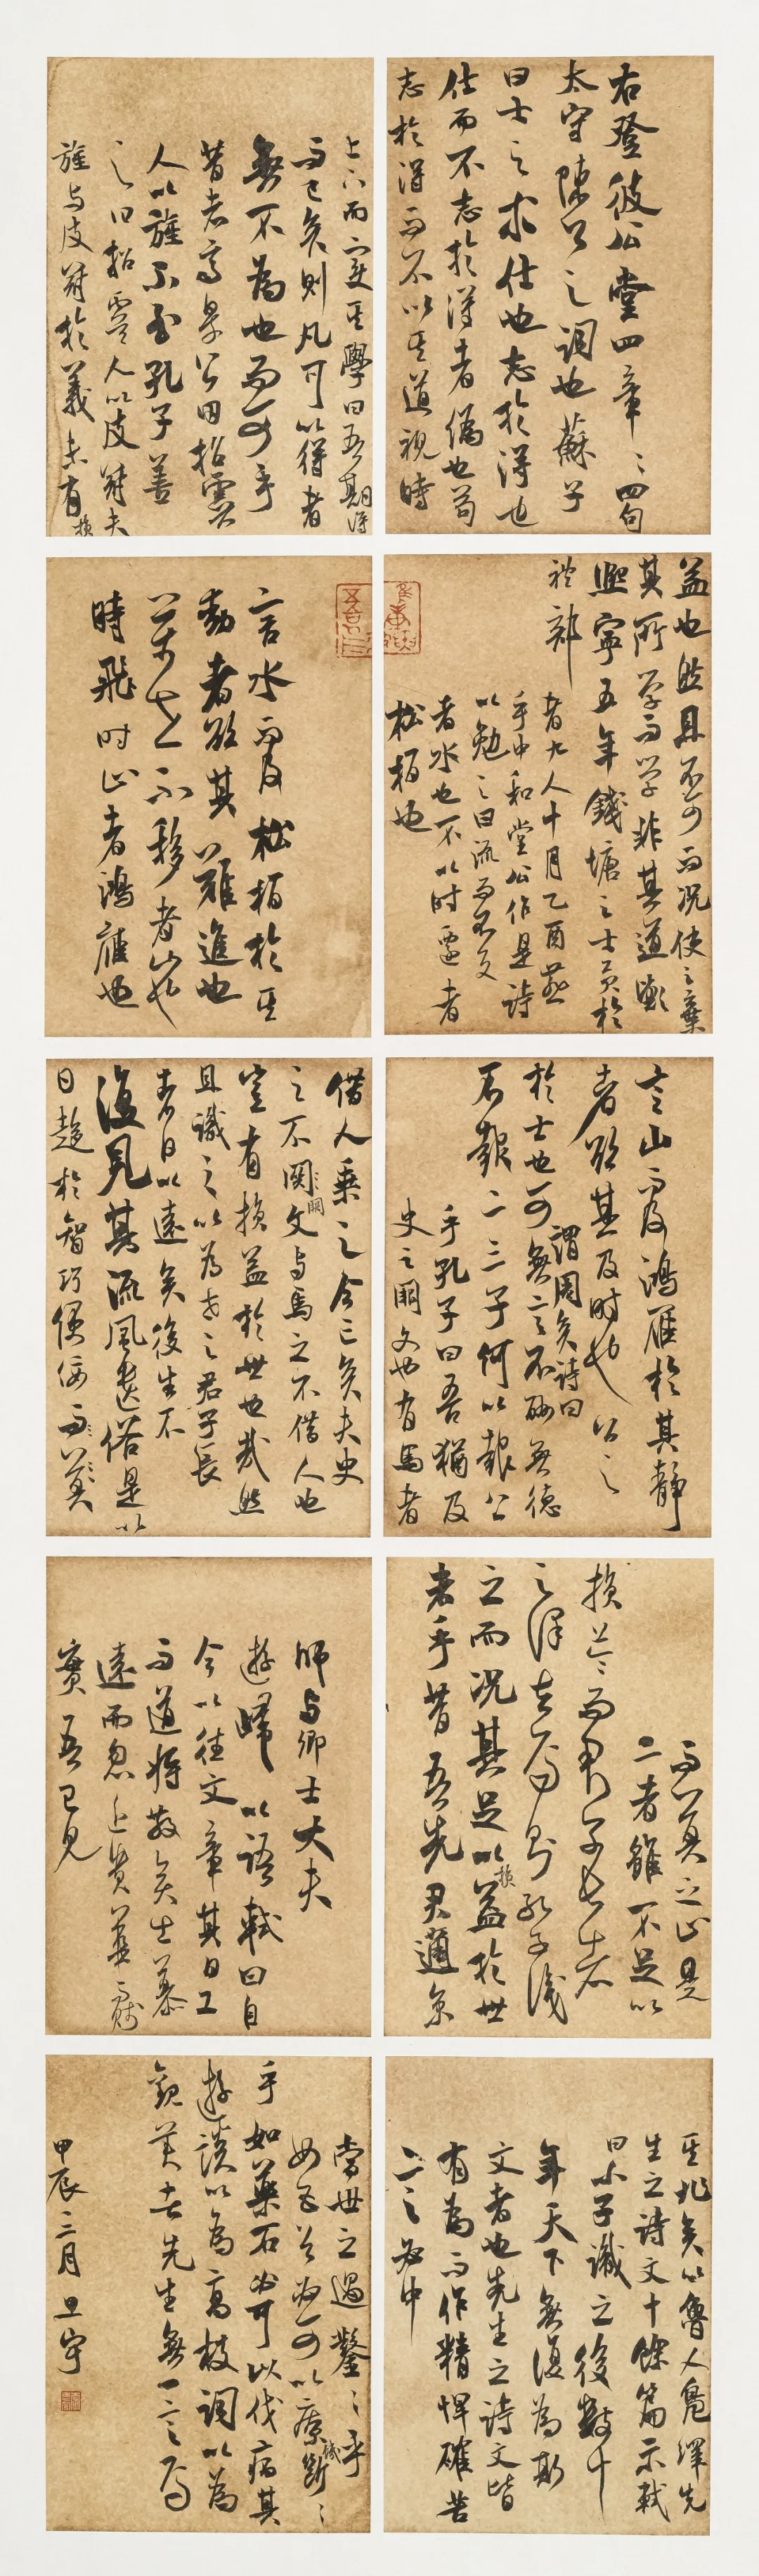 右登彼公堂四章〻四句
太守陳公之詞也蘇子
曰士之求仕也志於得也
仕而不志於得者偽也苟
志於得而不以其道視時
上下而變其學曰吾期得
而已矣則凡可以得者
無不為也而可乎
昔者齊景公田招虞
人以旌不至孔子善
之曰招虞人以皮冠夫
旌与皮冠於義未有損
益也然且不可而況使之棄
其所學而學非其道歟
熙寧五年錢塘之士貢於
禮部
者九人十月乙酉燕
于中和堂公作是詩
以勉之曰流而不返
者水也不以时遷者
松柏也
言水而及松柏於其
動者欲其難進也
萬世不移者山也
時飛时止者鴻雁也
言山而及鴻雁於其靜
者欲其及時也公之
於士也可謂周矣詩曰無言不酬無德
不報二三子何以報公
乎孔子曰吾猶及
史之闕文也有馬者
借人乘之今亡矣夫史
之不闕文与馬之不借人也
豈有損益於世也哉然
且識之以為世之君子長
者日以遠矣後生不
復見其流風遺俗是以
日趨於智巧便佞而莫
而莫之止是
二者雖不足以
損益而君子長者
之澤在焉則孔子識
之而況其足以損益於世
者乎昔吾先君適京
師与卿士大夫
遊歸以語軾曰自
今以往文章其日工
而道將散矣士慕
遠而忽近貴華而賤
實吾已見
其兆矣以魯人鳧繹先
生之詩文十餘篇示軾
曰小子識之後數十
年天下無復為斯
文者也先生之詩文皆
有為而作精悍確苦
言必中
當世之過鑿〻乎
如五谷必可以療飢斷〻
乎如藥石必可以伐病其
遊談以為高枝詞以為
觀美者先生無一言焉
甲辰三月